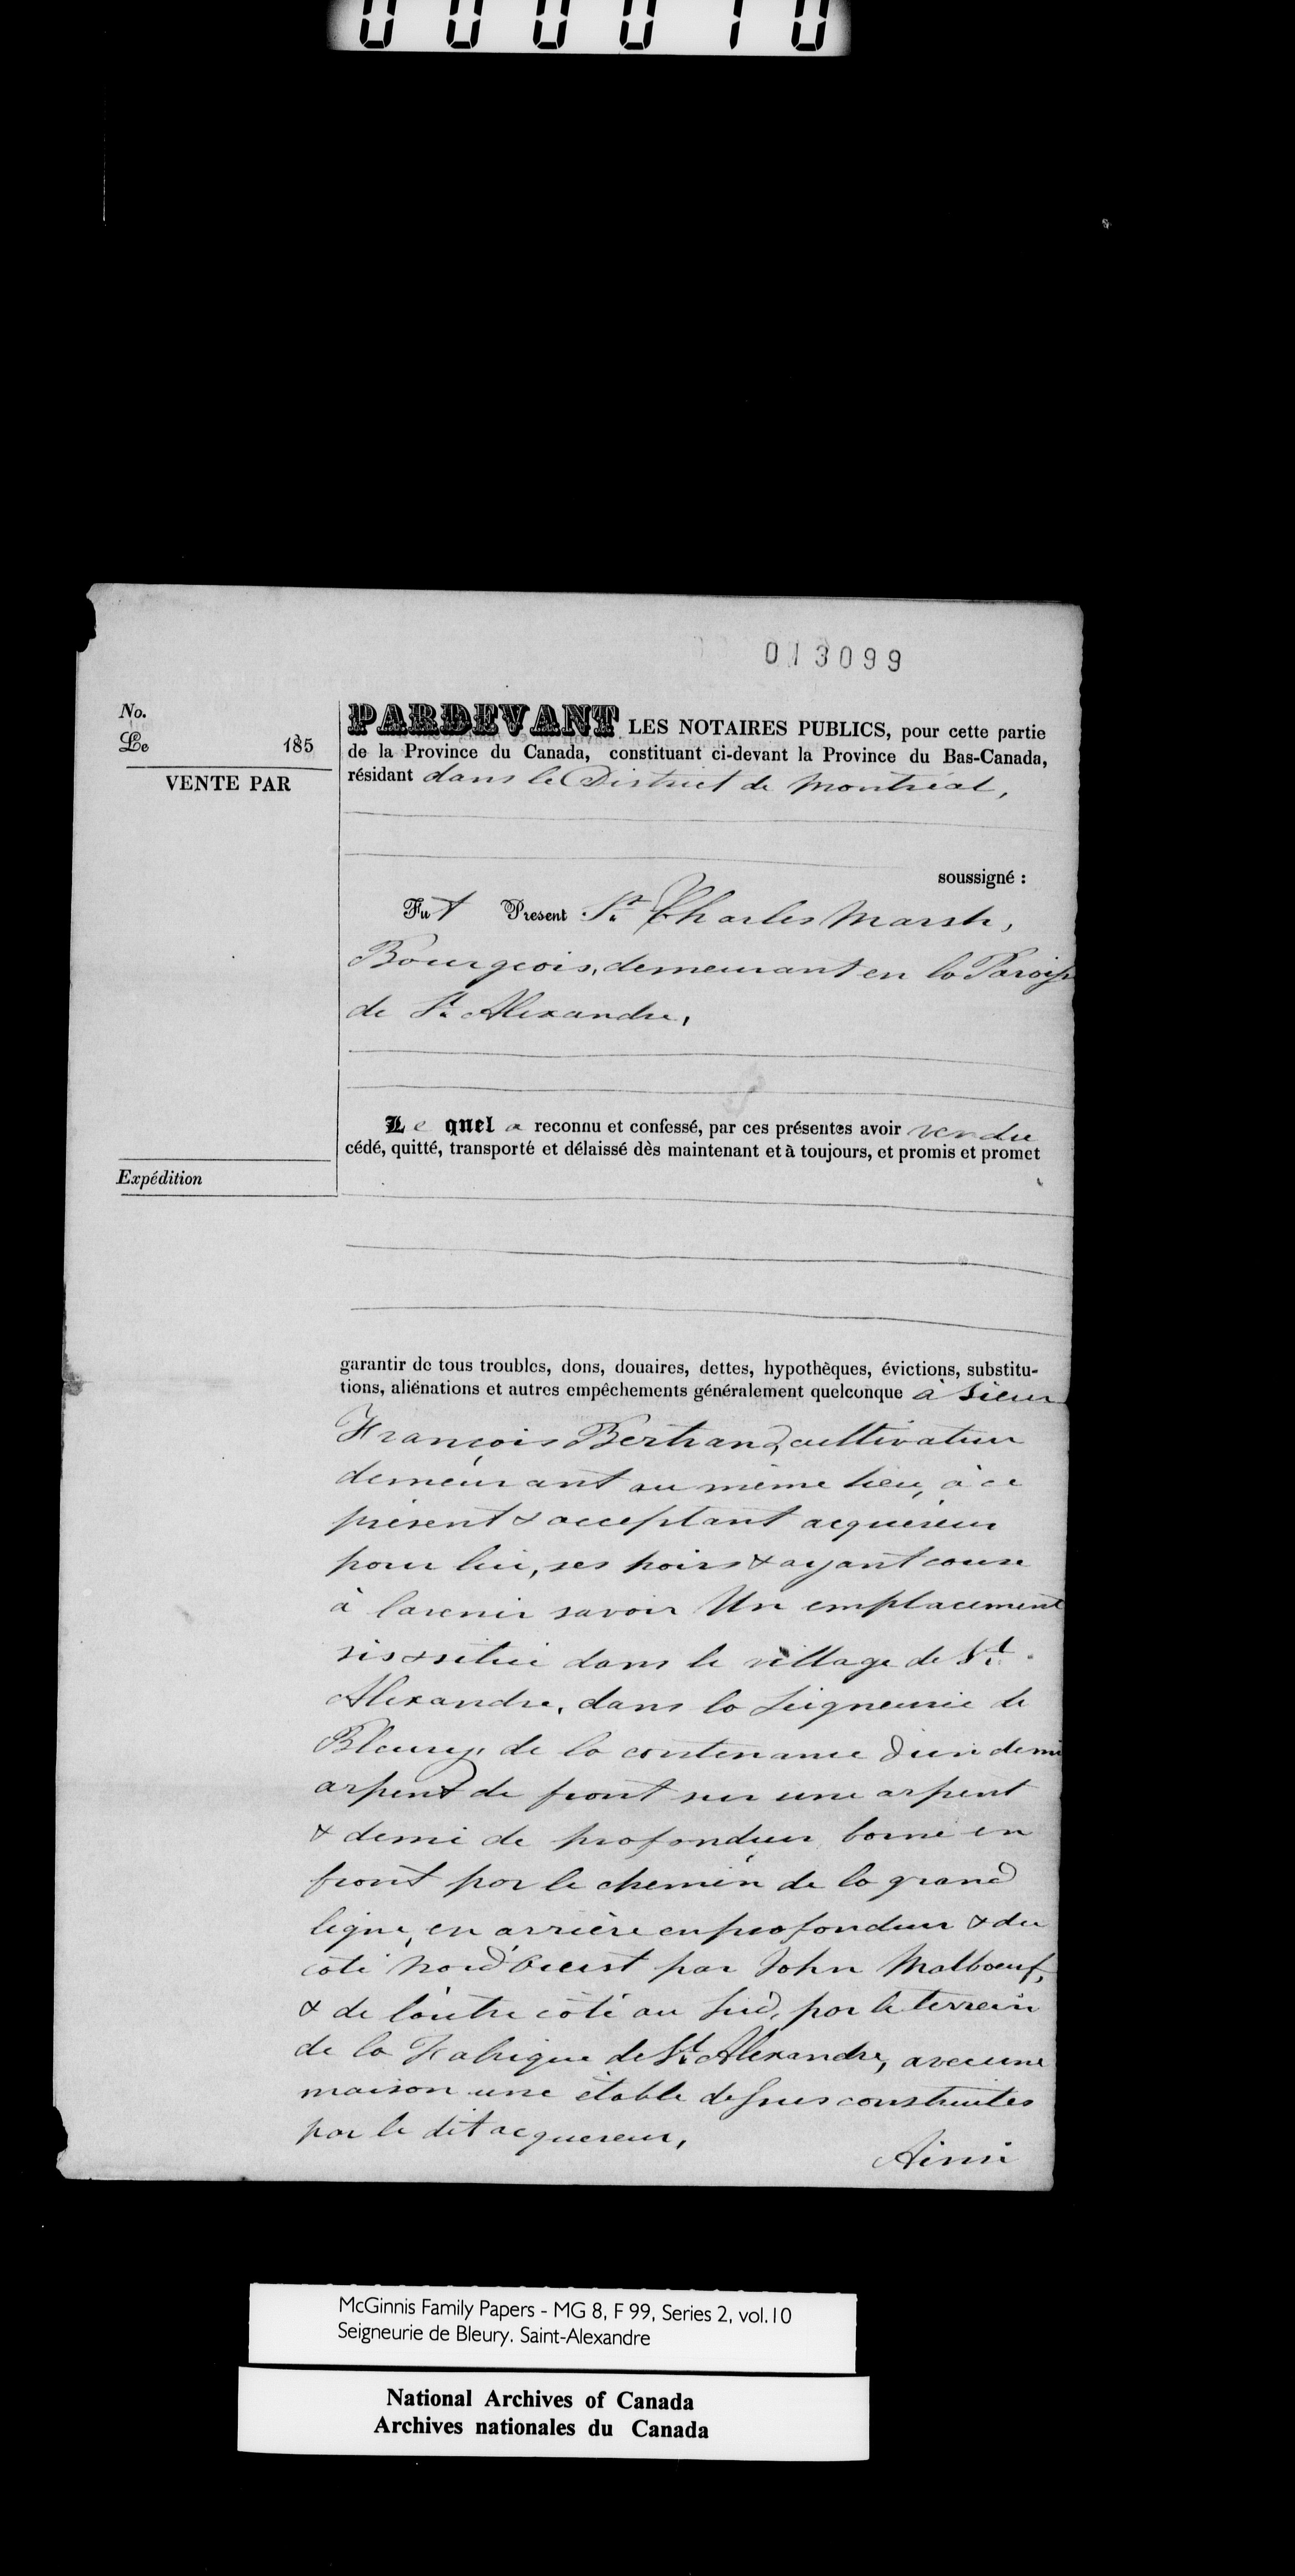 000010
013099
No.
Le 185
VENTE PAR
Expédition
PARDEVANT LES NOTAIRES PUBLICS, pour cette partie
de la Province du Canada, constituant ci-devant la Province du Bas-Canada,
résidant dans le District de Montréal,
soussigné :
Fut Present Sr. Charles Marsh,
Bourgeois, demeurant en la Paroisse
de St. Alexandre,
Le quel a reconnu et confessé, par ces présentes avoir vendu
cédé, quitté, transporté et délaissé dès maintenant et à toujours, et promis et promet
garantir de tous troubles, dons, douaires, dettes, hypothèques, évictions, substitu-
tions, aliénations et autres empêchements généralement quelconque à Sieur
François Bertrand, cultivateur
demeurant au même lieu, à ce
présent & acceptant acquéreur
pour lui, ses hoirs & ayant cause
à l'avenir savoir Un emplacement
sis & situé dans le village de St.
Alexandre, dans la Seigneurie de
Bleury, de la contenance d'un demi
arpent de front sur une arpent
& demi de profondeur, borné en
front par le chemin de la grand
ligne, en arrière en profondeur & du
coté Nord Ouest par John Malboeuf,
& de l'autre côté au Sud, par le terrein
de la Fabrique de St. Alexandre, avec une
maison une étable dessus construites
par le dit acquereur,
Ainsi
McGinnis Family Papers - MG 8, F 99, Series 2, vol.10
Seigneurie de Bleury. Saint-Alexandre
National Archives of Canada
Archives nationales du Canada